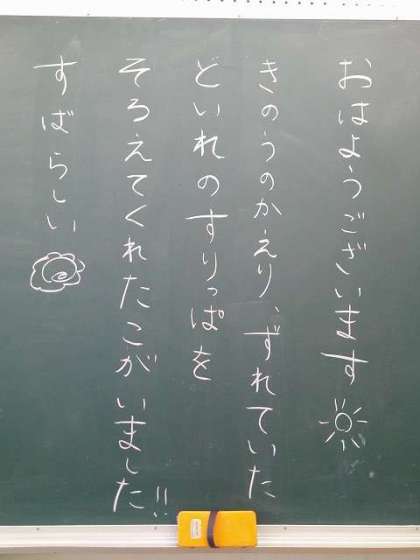 おはようございます
きのうのかえり、ずれていた
といれのすりっぱを
そろえてくれたこがいました!!
すばらしい